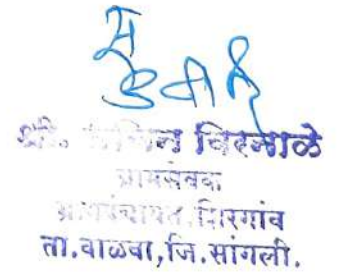 श्री. सचिन विरमाळे
ग्रामसेवक
ग्रामपंचायत, शिरगांव
ता.वाळवा,जि.सांगली.